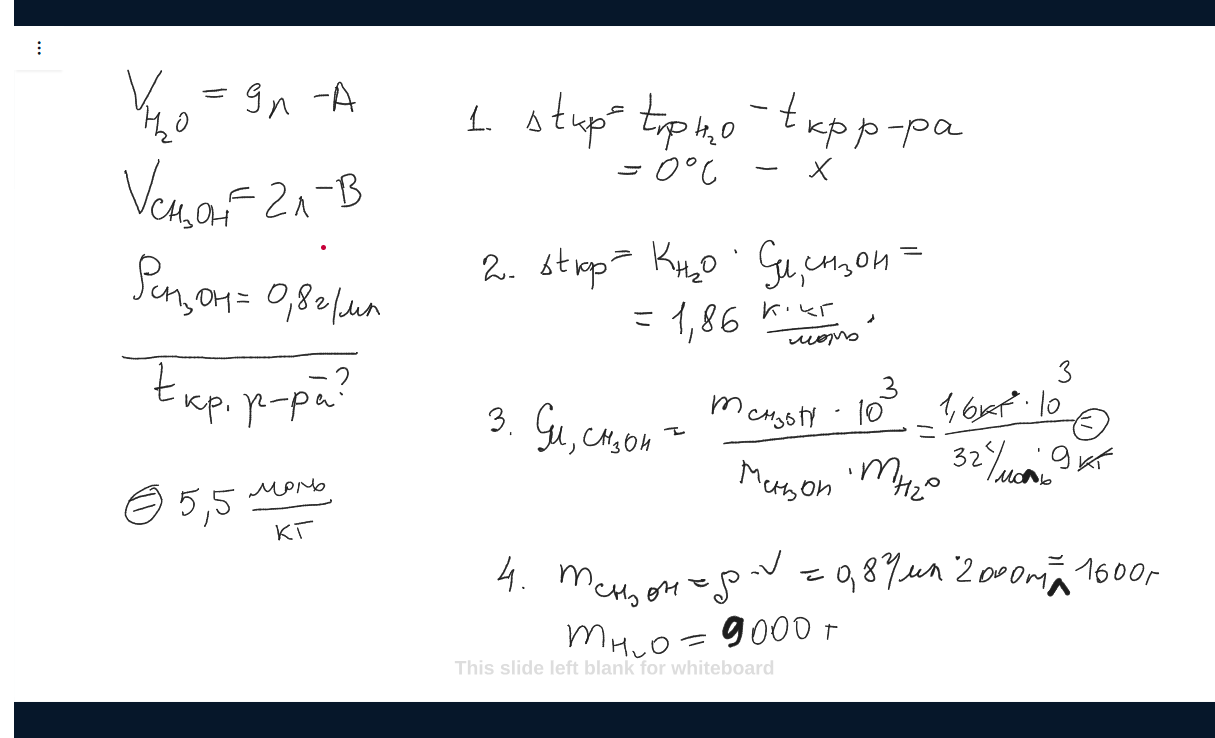 V H₂O = 9л - A
V CH₃OH = 2л - B
ρ CH₃OH = 0,8г/мл
t кр. р-ра - ?
⊖ 5,5 моль/кг
1. Δt кр = t кр H₂O - t кр р-ра
= 0°C - x
2. Δt кр = K H₂O · Cμ, CH₃OH =
= 1,86 К·кг/моль ·
3. Cμ, CH₃OH = m CH₃OH · 10³ / M CH₃OH · m H₂O = 1,6кг · 10³ / 32 г/моль · 9 кг ⊖
4. m CH₃OH = ρ · V = 0,8 г/мл · 2000мл = 1600г
m H₂O = 9000 г
This slide left blank for whiteboard